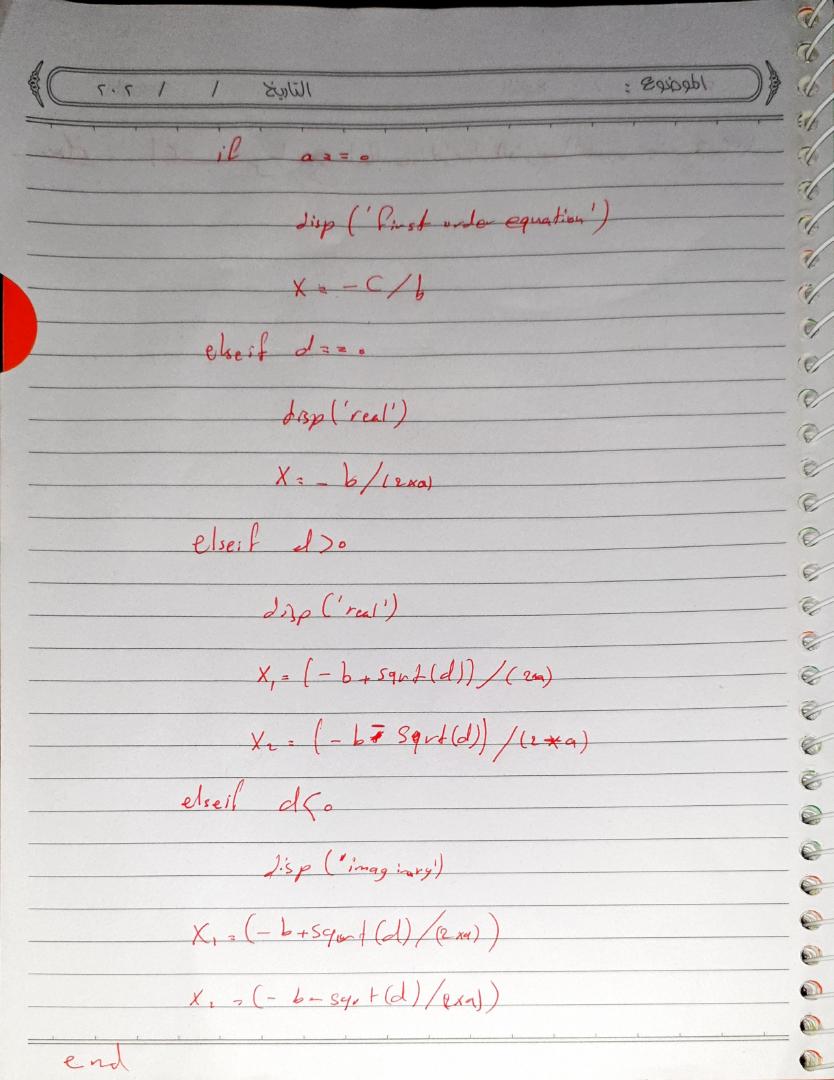 الموضوع : التاريخ / / ٢٠٢
if a==0
disp ('first order equation')
X = -C/b
elseif d==0
disp('real')
X= -b/(2*a)
elseif d>0
disp ('real')
X₁=(-b+sqrt(d))/(2*a)
X₂=(-b-sqrt(d))/(2*a)
elseif d<0
disp ('imaginary')
X₁=(-b+sqrt(d)/(2*a))
X₂=(-b-sqrt(d)/(2*a))
end